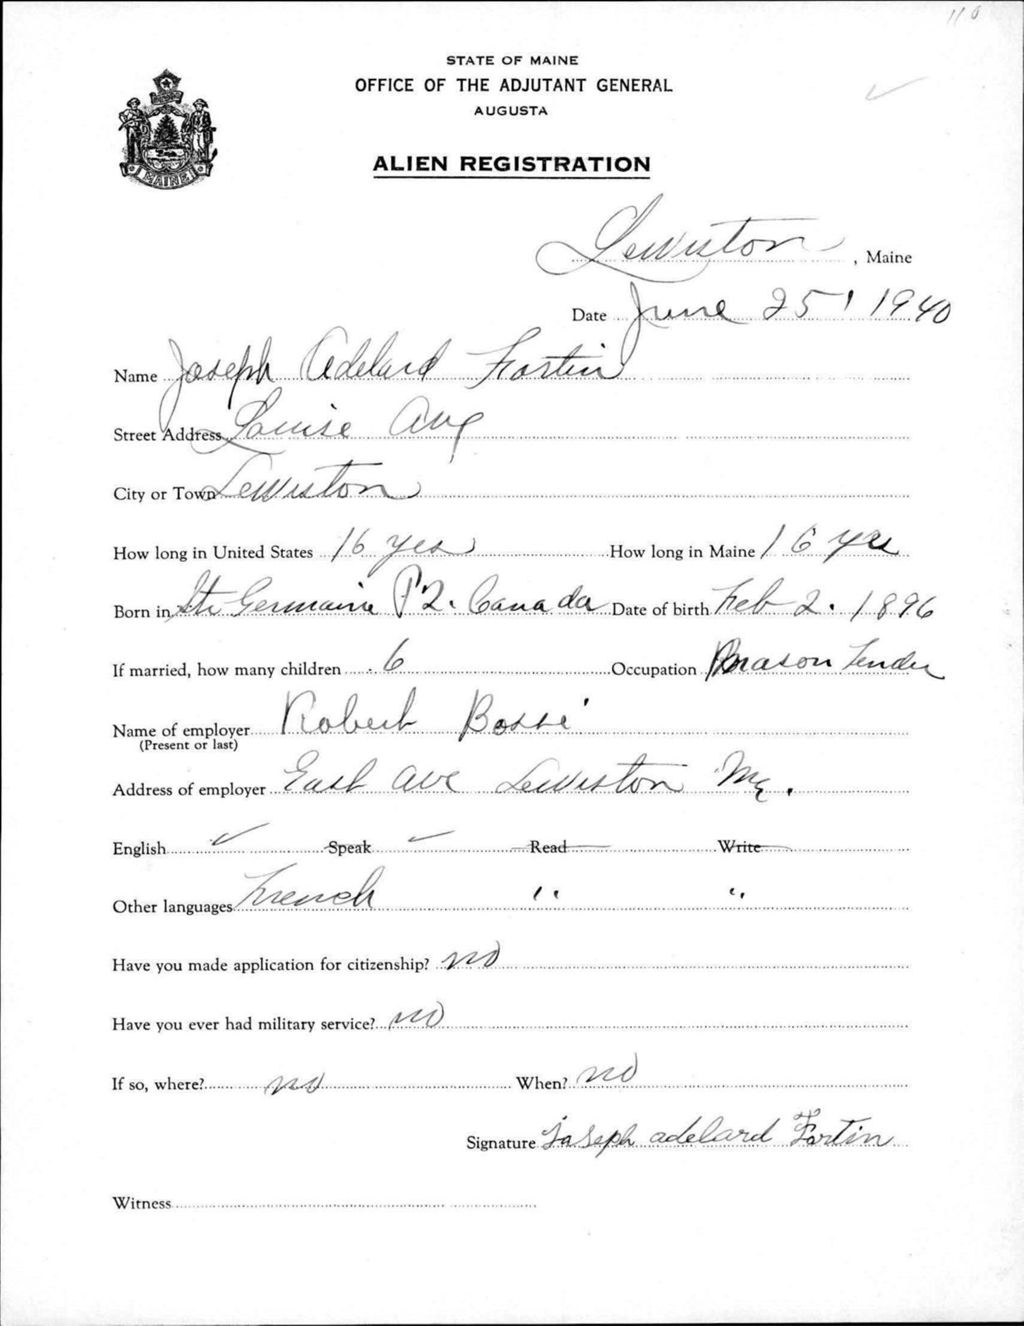 110
STATE OF MAINE
OFFICE OF THE ADJUTANT GENERAL
AUGUSTA
MAINE
ALIEN REGISTRATION
Lewiston, Maine
Date June 25, 1940
Name Joseph Adelard Fortin
Street Address Louise Ave
City or Town Lewiston
How long in United States 16 yrs How long in Maine 16 yrs
Born in Ste Germaine P.Q. Canada Date of birth Feb 2. 1896
If married, how many children 6 Occupation Mason Tender
Name of employer Robert Bossé
(Present or last)
Address of employer East Ave Lewiston Me.
English ✓ Speak ✓ Read Write
Other languages French " "
Have you made application for citizenship? no
Have you ever had military service? no
If so, where? no When? no
Signature Joseph adelard Fortin
Witness